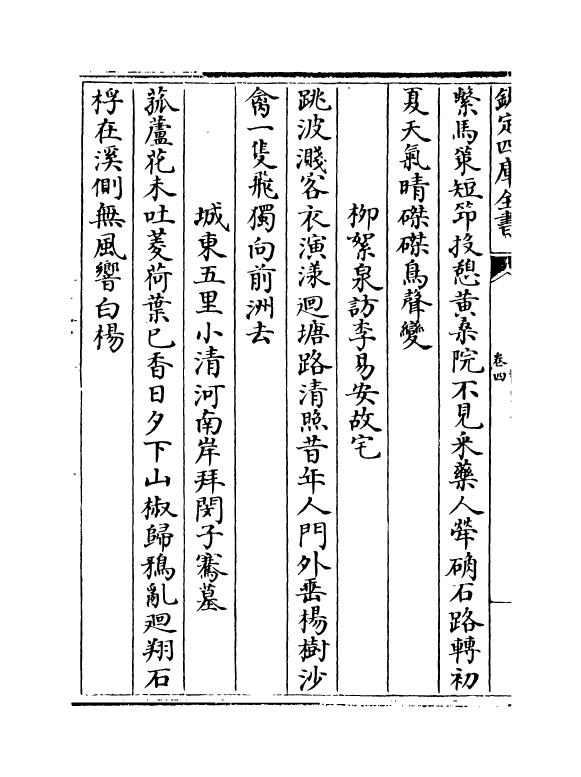 欽定四庫全書
卷四
繫馬策短笻投憩黄桑院不見采藥人犖确石路轉初
夏天氣晴磔磔鳥聲變
柳絮泉訪李易安故宅
跳波濺客衣演漾廻塘路清照昔年人門外垂楊樹沙
禽一隻飛獨向前洲去
城東五里小清河南岸拜閔子騫墓
菰蘆花未吐菱荷葉已香日夕下山椒歸鴉亂廻翔石
桴在溪側無風響白楊